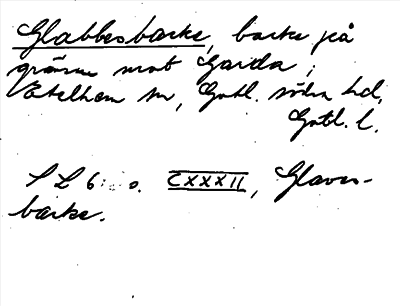 Glabbesbacke, backe på
gränsen mot Garda,
Etelhem sn, Gotl. södra hd,
Gotl. l.
SL 6: s. CXXXII, Glaves-
backe.